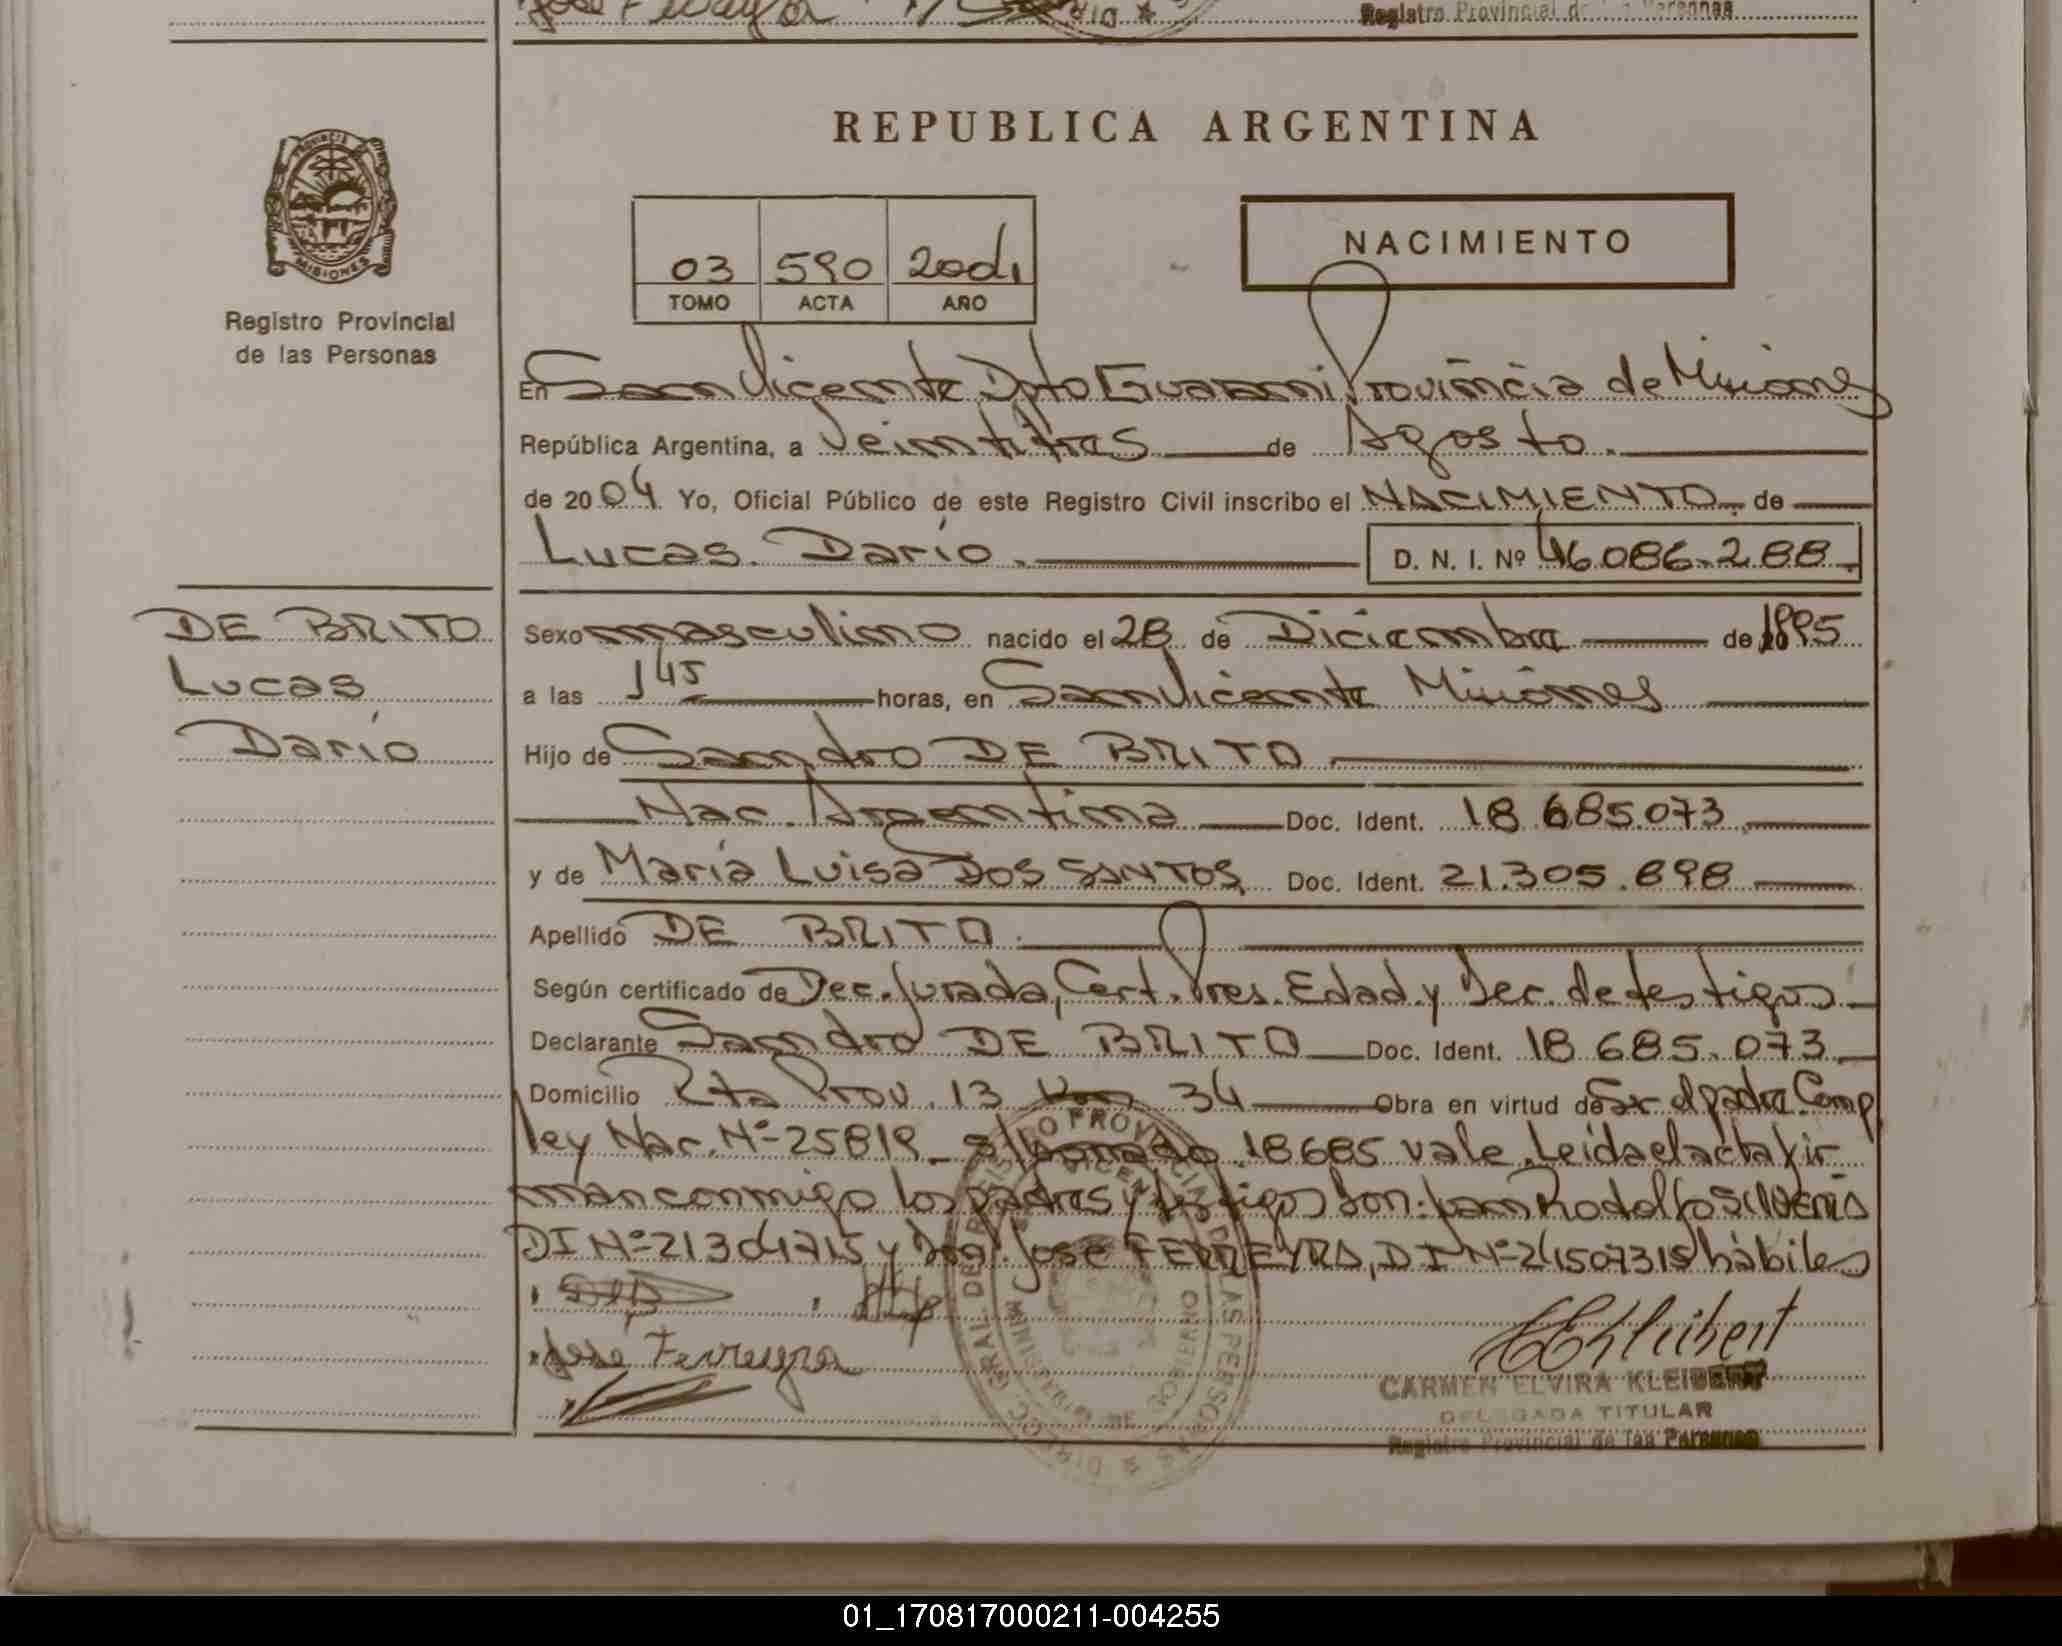 Registro Provincial de las Personas
REPUBLICA ARGENTINA
PROVINCIA
MISIONES
Registro Provincial
de las Personas
03 590 2004
TOMO ACTA AÑO
NACIMIENTO
En San Vicente Dpto Guarani Provincia de Misiones
República Argentina, a Veintitres de Agosto.
de 2004 Yo, Oficial Público de este Registro Civil inscribo el NACIMIENTO de
Lucas Darío. D. N. I. Nº 46.086.288
DE BRITO
Lucas
Darío
Sexo masculino nacido el 28 de Diciembre de 1995
a las 1 45 horas, en San Vicente Misiones
Hijo de Sandro DE BRITO
Nac. Argentina Doc. Ident. 18 685.073
y de María Luisa DOS SANTOS Doc. Ident. 21.305.898
Apellido DE BRITO.
Según certificado de Dec. Jurada, Cert. Pres. Edad y Dec. de testigos
Declarante Sandro DE BRITO Doc. Ident. 18 685.073
Domicilio Rta Prov. 13 Km 34 Obra en virtud de Sr el padre Comp
ley Nac. Nº 25819 s/borrado 18685 vale. Leida el acta fir
man conmigo los padres y testigos Son: Juan Rodolfo
DI Nº 21304715 y José FERREYRA, D I Nº 24507315 hábiles
José Ferreyra
CARMEN ELVIRA KLEIBERT
DELEGADA TITULAR
Registro Provincial de las Personas
01_170817000211-004255